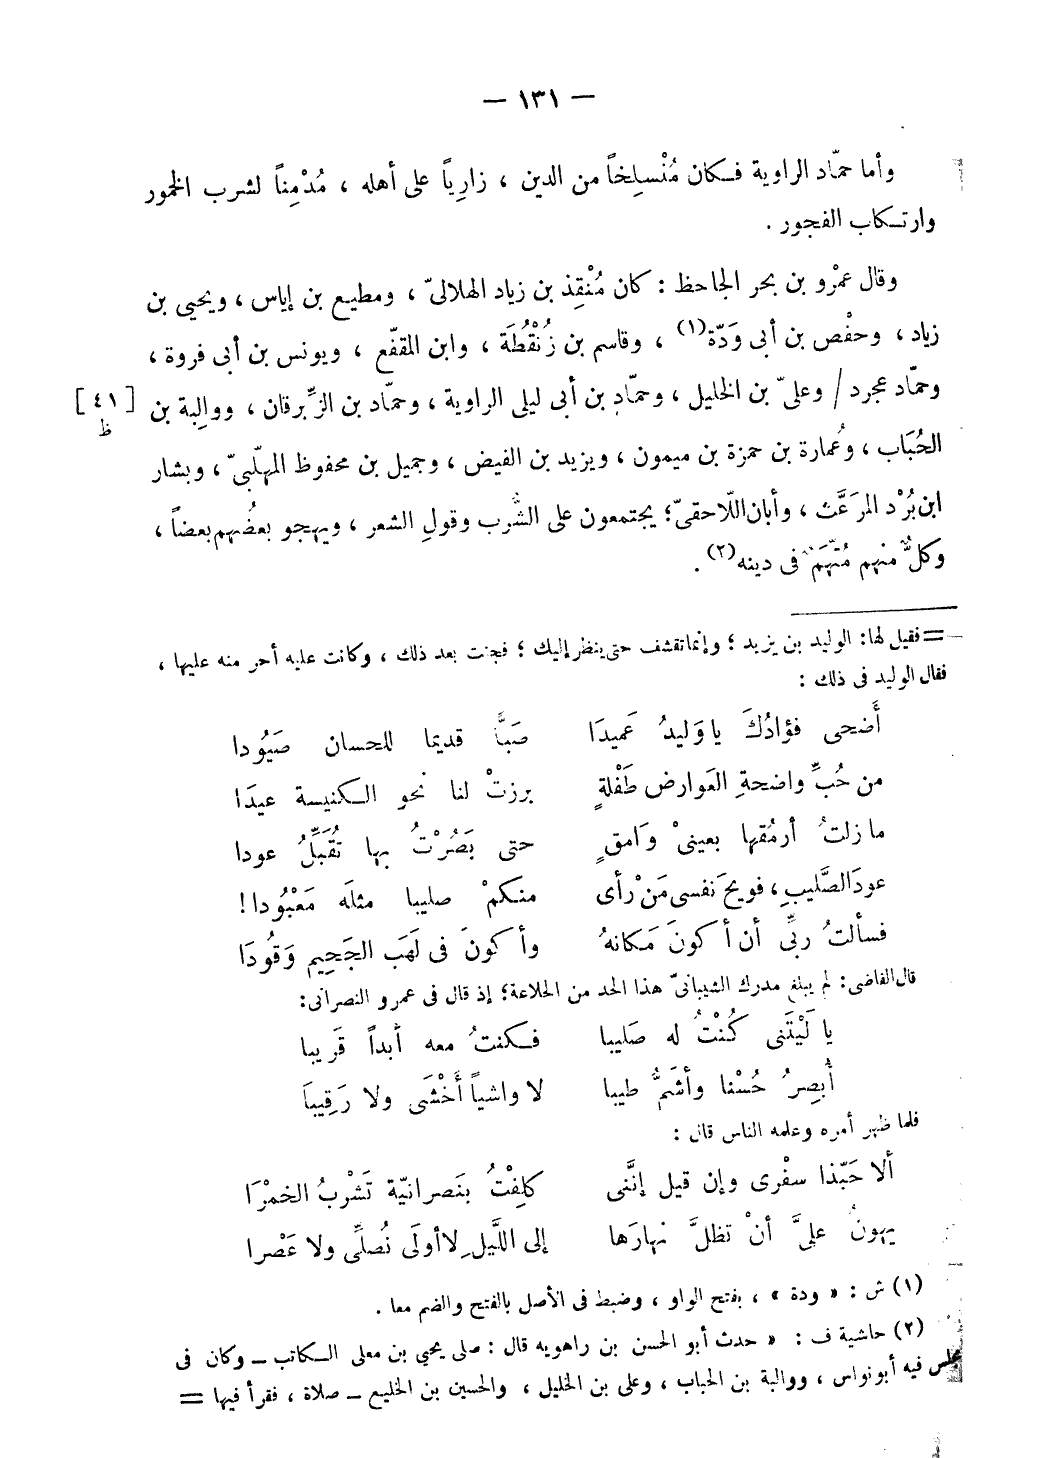 — ١٣١ —
وأما حمّاد الراوية فكان مُنْسلِخاً من الدين ، زارِياً على أهله ، مُدْمِناً لشرب الخمور
وارتكاب الفجور .
وقال عمْرو بن بحر الجاحظ : كان مُنْقِذ بن زياد الهلالىّ ، ومطيع بن إياس ، ويحيى بن
زياد ، وحفْص بن أبى وَدّة(١) ، وقاسم بن زُنْقُطَة ، وابن المقفّع ، ويونس بن أبى فروة ،
وحمّاد عجرد / وعلىّ بن الخليل ، وحمّاد بن أبى ليلى الراوية ، وحمّاد بن الزِّبرقان ، ووالِبة بن [ ٤١ ظ ]
الحُبَاب ، وعُمارة بن حمزة بن ميمون ، ويزيد بن الفيض ، وجميل بن محفوظ المهلّبىّ ، وبشار
ابن بُرْد المرَعَّث ، وأبان اللّاحقىّ؛ يجتمعون على الشُّرب وقولِ الشعر ، ويهجو بعضُهم بعضاً ،
وكلٌّ منهم مُتَّهَمٌ فى دينه(٢) .
= فقيل لها: الوليد بن يزيد ؛ وإنما تقشف حتى ينظر إليك ؛ فجنت بعد ذلك ، وكانت عليه أحر منه عليها ،
فقال الوليد فى ذلك :
أَضحى فؤادُكَ يا وَليدُ عَميدَا صَبًّا قديما للحسان صَيُودا
من حُبِّ واضحةِ العَوارض طَفْلةٍ برزتْ لنا نحو الكنيسة عيدَا
ما زلتُ أرمُقها بعينىْ وَامقٍ حتى بَصُرْتُ بها تُقَبِّلُ عودا
عودَ الصَّليبِ، فويحَ نفسى مَنْ رأى منكمْ صليبا مثلَه مَعْبُودا!
فسألتُ ربِّى أن أكونَ مَكانهُ وأكونَ فى لَهَب الجَحِيم وَقُودَا
قال القاضى: لم يبلغ مدرك الشيبانىّ هذا الحد من الخلاعة؛ إذ قال فى عمرو النصرانى:
يا لَيْتَنى كُنْتُ له صَليبا فكنتُ معه أبداً قَريبا
أُبصِرُ حُسْنا وأشَمُّ طيبا لا واشياً أَخْشَى ولا رَقِيبَا
فلما ظهر أمره وعلمه الناس قال :
ألا حَبّذا سفْرى وإن قيل إنَّنى كلِفْتُ بنَصرانيّة تَشْربُ الخمْرَا
يهونُ علىَّ أنْ تظلَّ نهارَها إلى اللَّيلِ لا أولَى نُصلِّى ولا عَصْرا
(١) ش : « ودة » ، بفتح الواو ، وضبط فى الأصل بالفتح والضم معا .
(٢) حاشية ف : « حدث أبو الحسن بن راهويه قال : صلى يحيى بن معلى الكاتب ـ وكان فى
مجلس فيه أبو نواس ، ووالبة بن الحباب ، وعلى بن الخليل ، والحسين بن الخليع ـ صلاة ، فقرأ فيها =